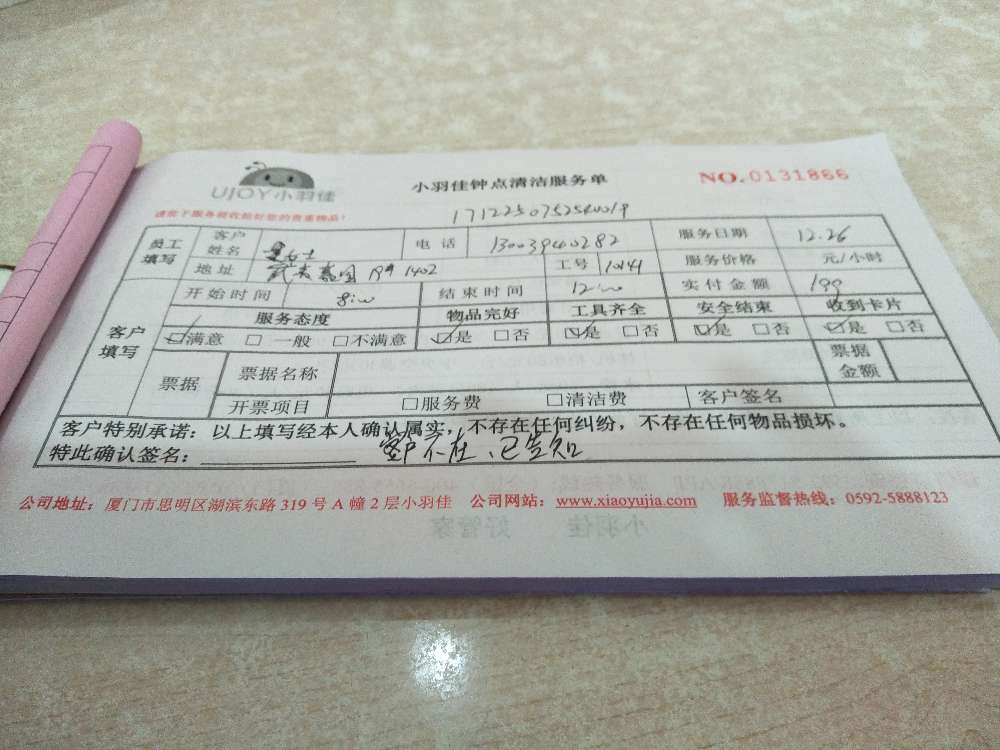 UJOY小羽佳 小羽佳钟点清洁服务单 NO.0131866
员工填写 客户姓名 女士 电话 13003940282 服务日期 12.26
地址 1402 工号 10141 服务价格 元/小时
开始时间 8:00 结束时间 12:00 实付金额 199
客户填写 服务态度 物品完好 工具齐全 安全结束 收到卡片
☑满意 □一般 □不满意 ☑是 □否 ☑是 □否 ☑是 □否 ☑是 □否
票据 票据名称 票据金额
开票项目 □服务费 □清洁费 客户签名
客户特别承诺:以上填写经本人确认属实,不存在任何纠纷,不存在任何物品损坏。
特此确认签名: 客户不在、已告知
公司地址:厦门市思明区湖滨东路 319 号 A 幢 2 层小羽佳 公司网站:www.xiaoyujia.com 服务监督热线:0592-5888123